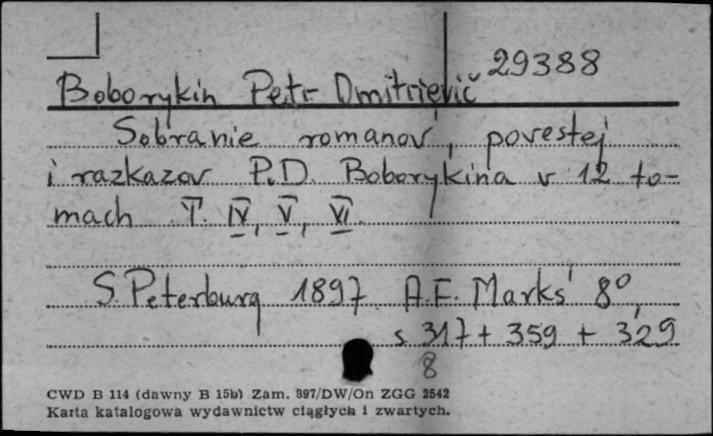 29388
Boborykin Petr Dmitrievič
Sobranie romanov, povestej
i razkazov P.D. Boborykina v 12 to-
mach T. IV, V, VI.
S. Peterburg 1897 A.F. Marks' 8°,
s 317 + 359 + 329
8
CWD B 114 (dawny B 15b) Zam. 897/DW/On ZGG 2542
Karta katalogowa wydawnictw ciągłych i zwartych.